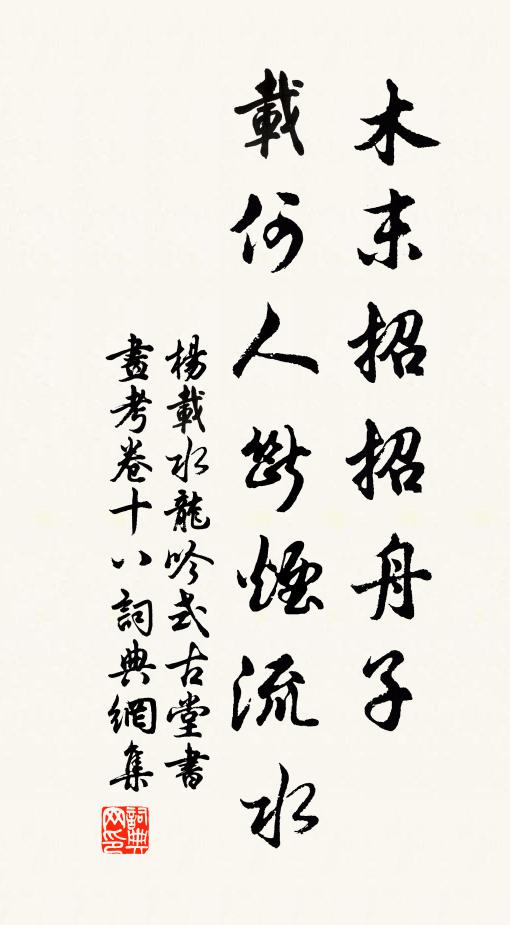 木末招招舟子
載何人斷煙流水
楊載水龍吟式古堂書
畫考卷十八詞典網集
詞典
网印